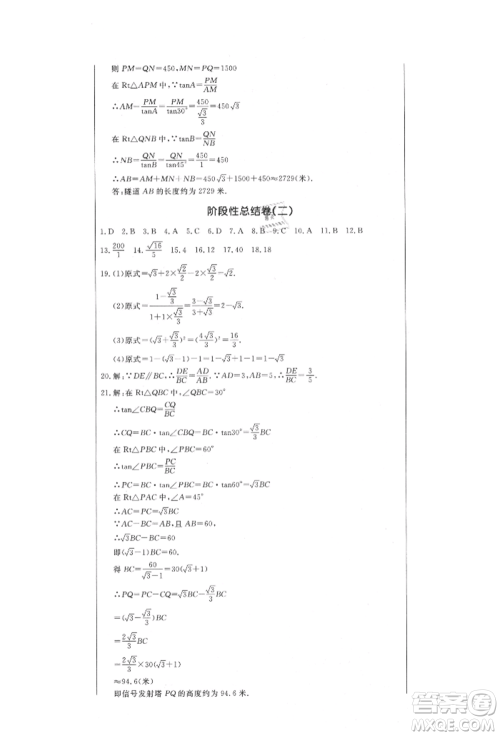 则 PM=QN=450,MN=PQ=1500
在 Rt△APM 中,∵tanA=PM/AM
∴AM=PM/tanA=PM/tan30°=450/(√3/3)=450√3
在 Rt△QNB 中,∵tanB=QN/NB
∴NB=QN/tanB=QN/tan45°=450/1=450
∴AB=AM+MN+NB=450√3+1500+450≈2729(米)
答:隧道 AB 的长度约为 2729 米.
阶段性总结卷(二)
1.D 2.B 3.B 4.C 5.A 6.D 7.A 8.B 9.C 10.A 11.B 12.C
13.200/1 14.√16/5 15.4 16.0 17.12 18.4
19.(1)原式=√3+2×√2/2-2=√3+√2-2.
(2)原式=(1-√3/3)/(1+1×√3/3)=(3-√3)/(3+√3)=2-√3.
(3)原式=(√3+√3/3)²=(4√3/3)²=16/3.
(4)原式=1-(1-√3)-√3=1-1+√3-√3=0.
20.解:∵DE∥BC,∴DE/BC=AD/AB.∵AD=3,AB=5,∴DE/BC=3/5.
21.解:在 Rt△CBQ 中,∠QBC=30°
∴tan∠CBQ=CQ/BC
∴CQ=BC·tan∠CBQ=BC·tan30°=√3/3BC
在 Rt△PBC 中,∵tan∠PBC=PC/BC
∴PC=BC·tan∠PBC=BC·tan60°=√3BC
在 Rt△PAC 中,∠A=45°
∴AC=PC=√3BC
∵AC=AB+BC,且 AB=60
∴√3BC=AB+BC=60+BC
即(√3-1)BC=60
得 BC=60/(√3-1)=30(√3+1)
∴PQ=PC-CQ=√3BC-√3/3BC=(√3-√3/3)BC
=2√3/3BC
=2√3/3×30(√3+1)
≈94.6(米)
即信号发射塔 PQ 的高度约为 94.6 米.